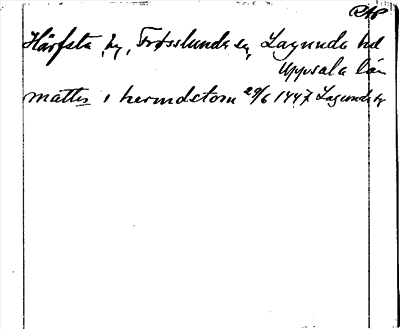 Härfsta by, Frösslunda sn, Lagunda hd
Uppsala län
mattis i hermdstom 29/6 1447 Lagunda